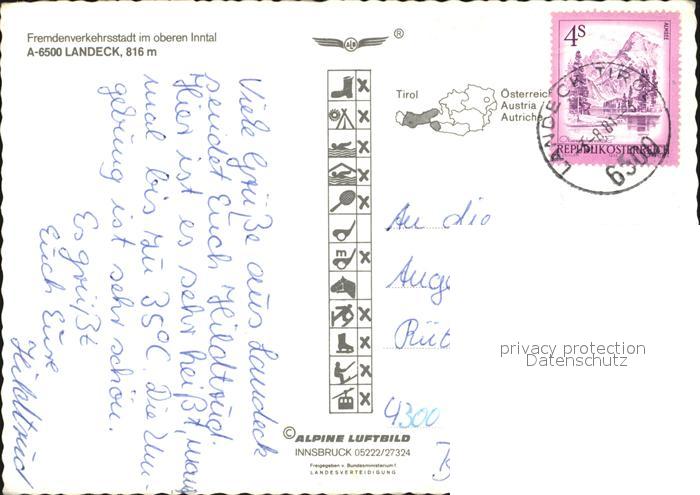 Fremdenverkehrsstadt im oberen Inntal
A-6500 LANDECK, 816 m
®
Tirol
Österreich
Austria
Autriche
4S
ALMSEE
REPUBLIK ÖSTERREICH
LANDECK, TIROL
6500
Viele Grüße aus Landeck
sendet Euch Hildtrud.
Hier ist es sehr heiß,
mal bis zu 35°C. Die Um-
gebung ist sehr schön.
Es grüßt
Euch Eure
Hildtrud
An die
Ange
Rüt
4300
privacy protection
Datenschutz
© ALPINE LUFTBILD
INNSBRUCK 05222/27324
Freigegeben v. Bundesministerium f.
LANDESVERTEIDIGUNG